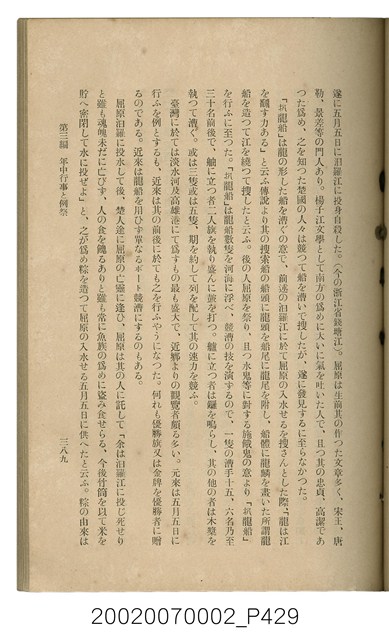 遂に五月五日に汨羅江に投身自殺した。（今の浙江省錢塘江）。屈原は生前其の作つた文章多く、宋玉、唐
勒、景差等の門人あり。楊子江文學として南方の爲めに大いに氣を吐いた人で、且つ其の忠貞、高潔であ
つた爲め、之を知つた楚國の人々は競つて船を漕いで捜したが、遂に發見するに至らなかつた。
「扒龍船」は龍の形した船を漕ぐの意で、前述の汨羅江に於て屈原の入水せるを搜さんとした際、「龍は江
を翻す力ある」と云ふ傳說より其の搜索船の船頭に龍頭を船尾に龍尾を附し、船體に龍鱗を畫いた所謂龍
船を造つて江を繞つて捜したと云ふ。後の人屈原を祭り、且つ水鬼等に對する施餓鬼の意より「扒龍船」
を行ふに至つた。「扒龍船」は龍船數隻を河海に浮べ、競漕の技を演するので、一隻の漕手十五、六名乃至
三十名前後で、舳に立つ者二人旗を執り盛んに鼓を打つ。艫に立つ者は鑼を鳴らし、其の他の者は木槳を
執つて漕ぐ。或は三隻或は五隻、期を約して列を配して其の速力を競ふ。
臺灣に於ては淡水河及高雄港にて爲すもの最も盛大で、近鄕よりの觀覽者頗る多い。元來は五月五日に
行ふを例とするも、近來は其の前後に於ても之を行ふやうになつた。何れも優勝旗又は金牌を優勝者に贈
るのである。近來は龍船を用ひず單なるボート競漕にするのもある。
屈原汨羅に投水して後、楚人途に屈原の亡靈に逢ひ、屈原は其の人に託して「余は汨羅江に投じ死せり
と雖も魂魄未だに亡びず、人の食を饋るありと雖も常に魚族の爲めに盜み食せらる、今後竹筒を以て米を
貯へ密閉して水に投ぜよ」と、之が爲め粽を造つて屈原の入水せる五月五日に供へたと云ふ。粽の由來は
第三編　年中行事と例祭
三八九
20020070002_P429